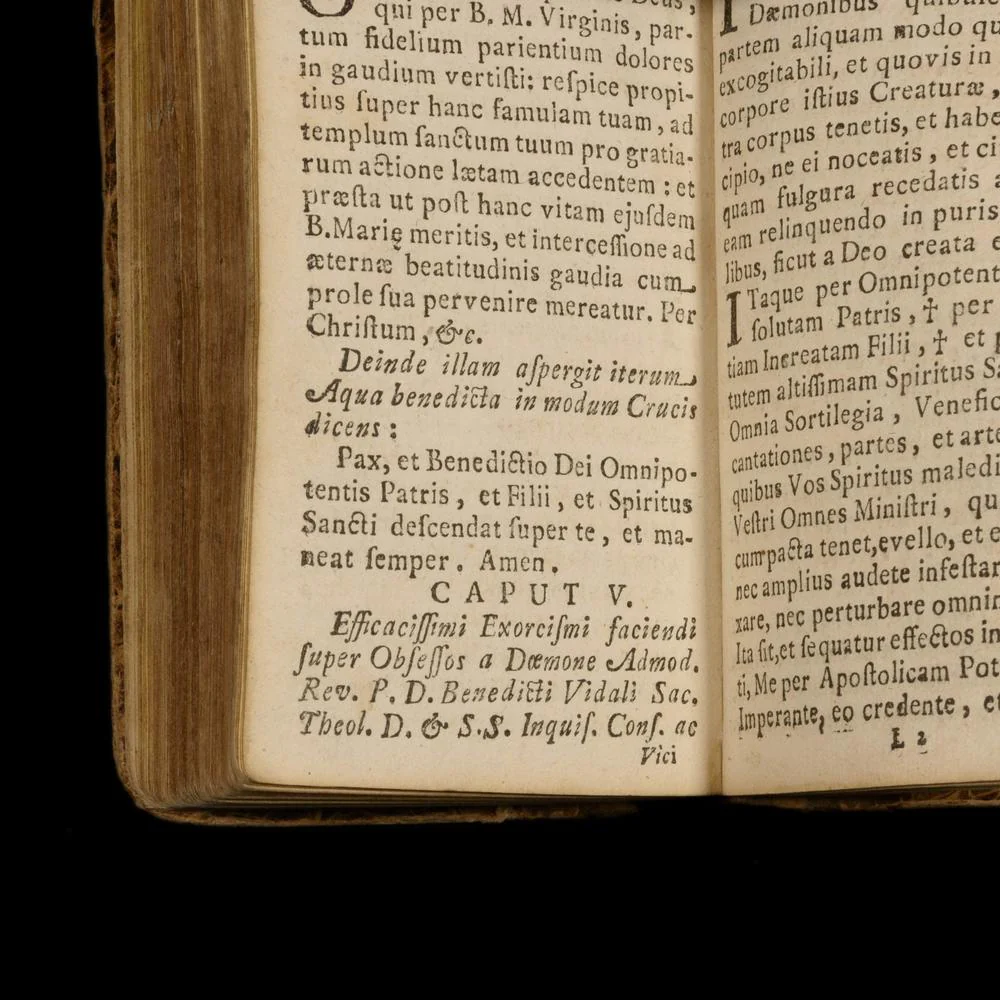 Deus,
qui per B. M. Virginis, par-
tum fidelium parientium dolores
in gaudium vertiſti: reſpice propi-
tius ſuper hanc famulam tuam, ad
templum ſanctum tuum pro gratia-
rum actione lætam accedentem : et
præſta ut poſt hanc vitam ejuſdem
B. Marię meritis, et interceſſione ad
æternæ beatitudinis gaudia cum
prole ſua pervenire mereatur. Per
Chriſtum, &c.
Deinde illam aſpergit iterum
Aqua benedicta in modum Crucis
dicens :
Pax, et Benedictio Dei Omnipo-
tentis Patris, et Filii, et Spiritus
Sancti deſcendat ſuper te, et ma-
neat ſemper. Amen.
CAPUT V.
Efficaciſſimi Exorciſmi faciendi
ſuper Obſeſſos a Dœmone Admod.
Rev. P. D. Benedicti Vidali Sac.
Theol. D. & S.S. Inquiſ. Conſ. ac
Vici
Dæmonibus
partem aliquam modo
excogitabili, et quovis in
corpore iſtius Creaturæ,
tra corpus tenetis, et
cipio, ne ei noceatis, et
quam fulgura recedatis
eam relinquendo in
libus, ſicut a Deo creata
ITaque per
ſolutam Patris, † per
tiam Increatam Filii, † et
tutem altiſſimam Spiritus
Omnia Sortilegia,
cantationes, partes, et
quibus Vos Spiritus
Veſtri Omnes Miniſtri,
cumpacta tenet, evello, et
nec amplius audete
xare, nec perturbare
Ita ſit, et ſequatur effectos
ti, Me per Apoſtolicam
Imperante, eo credente,
L 2